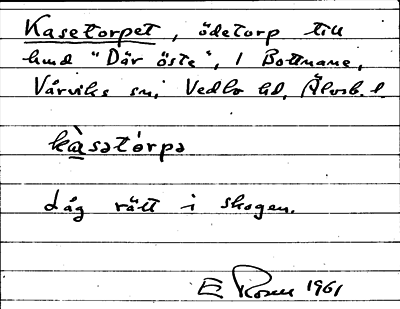 Kasetorpet, ödetorp till
hmd "Där öste", 1 Bottnane,
Vårviks sn, Vedbo hd, Älvsb. l.
kàsatórpə
Låg rätt i skogen.
E Rosen 1961